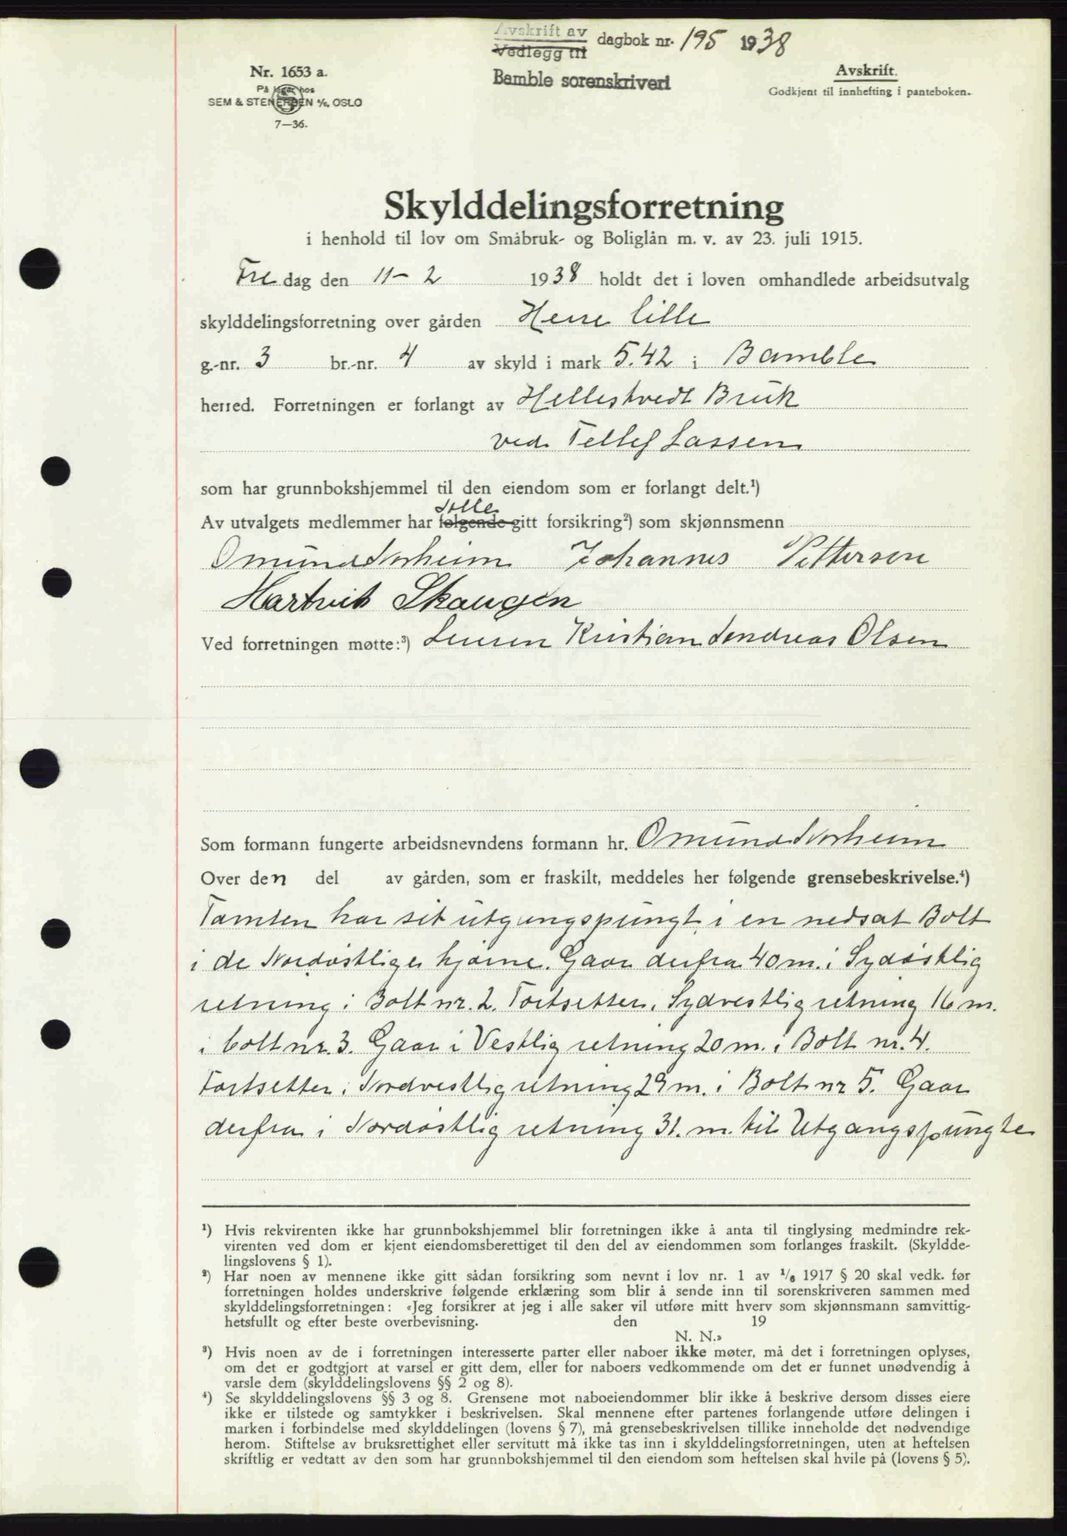 Avskrift av
Vedlegg til dagbok nr. 195 1938
Bamble sorenskriveri
Nr. 1653 a.
På lager hos
SEM & STENERSEN A/S, OSLO
7—36.
Avskrift.
Godkjent til innhefting i panteboken.
Skylddelingsforretning
i henhold til lov om Småbruk- og Boliglån m. v. av 23. juli 1915.
Fredag den 11-2 1938 holdt det i loven omhandlede arbeidsutvalg
skylddelingsforretning over gården Herre lille
g.-nr. 3 br.-nr. 4 av skyld i mark 5.42 i Bamble
herred. Forretningen er forlangt av Hellestvedt Bruk
ved Tellef Lassen
som har grunnbokshjemmel til den eiendom som er forlangt delt.¹)
Av utvalgets medlemmer har følgende gitt forsikring²) som skjønnsmenn
Omund Norheim Johannes Pettersen
Hartvik Skaugen
Ved forretningen møtte:³) Kristian Olsen
Som formann fungerte arbeidsnevndens formann hr. Omund Norheim
Over den del av gården, som er fraskilt, meddeles her følgende grensebeskrivelse.⁴)
Tomten har sit utgangspungt i en nedsat Bolt
i de Nordøstlige hjørne. Gaar derfra 40 m. i Sydøstlig
retning i Bolt nr. 2. Fortsetter i Sydvestlig retning 16 m.
i bolt nr. 3. Gaar i Vestlig retning 20 m. i Bolt nr. 4.
Fortsetter i Nordvestlig retning 29 m. i Bolt nr 5. Gaar
derfra i Nordøstlig retning 31. m. til Utgangspungte
¹) Hvis rekvirenten ikke har grunnbokshjemmel blir forretningen ikke å anta til tinglysing medmindre rek-
virenten ved dom er kjent eiendomsberettiget til den del av eiendommen som forlanges fraskilt. (Skyldde-
lingslovens § 1).
²) Har noen av mennene ikke gitt sådan forsikring som nevnt i lov nr. 1 av 1/6 1917 § 20 skal vedk. før
forretningen holdes underskrive følgende erklæring som blir å sende inn til sorenskriveren sammen med
skylddelingsforretningen: «Jeg forsikrer at jeg i alle saker vil utføre mitt hverv som skjønnsmann samvittig-
hetsfullt og efter beste overbevisning. den 19
N. N.»
³) Hvis noen av de i forretningen interesserte parter eller naboer ikke møter, må det i forretningen oplyses,
om det er godtgjort at varsel er gitt dem, eller for naboers vedkommende om det er funnet unødvendig å
varsle dem (skylddelingslovens §§ 2 og 8).
⁴) Se skylddelingslovens §§ 3 og 8. Grensene mot naboeiendommer blir ikke å beskrive dersom disses eiere
ikke er tilstede og samtykker i beskrivelsen. Skal mennene efter partenes forlangende utføre delingen i
marken i forbindelse med skylddelingen (lovens § 7), må grensebeskrivelsen tillike inneholde det nødvendige
herom. Stiftelse av bruksrettighet eller servitutt må ikke tas inn i skylddelingsforretningen, uten at heftelsen
skriftlig er vedtatt av den som har grunnbokshjemmel til den eiendom som heftelsen skal hvile på (lovens § 5).